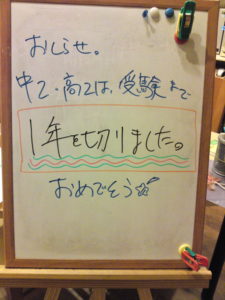 おしらせ。
中2・高2は、受験まで
1年を切りました。
おめでとう